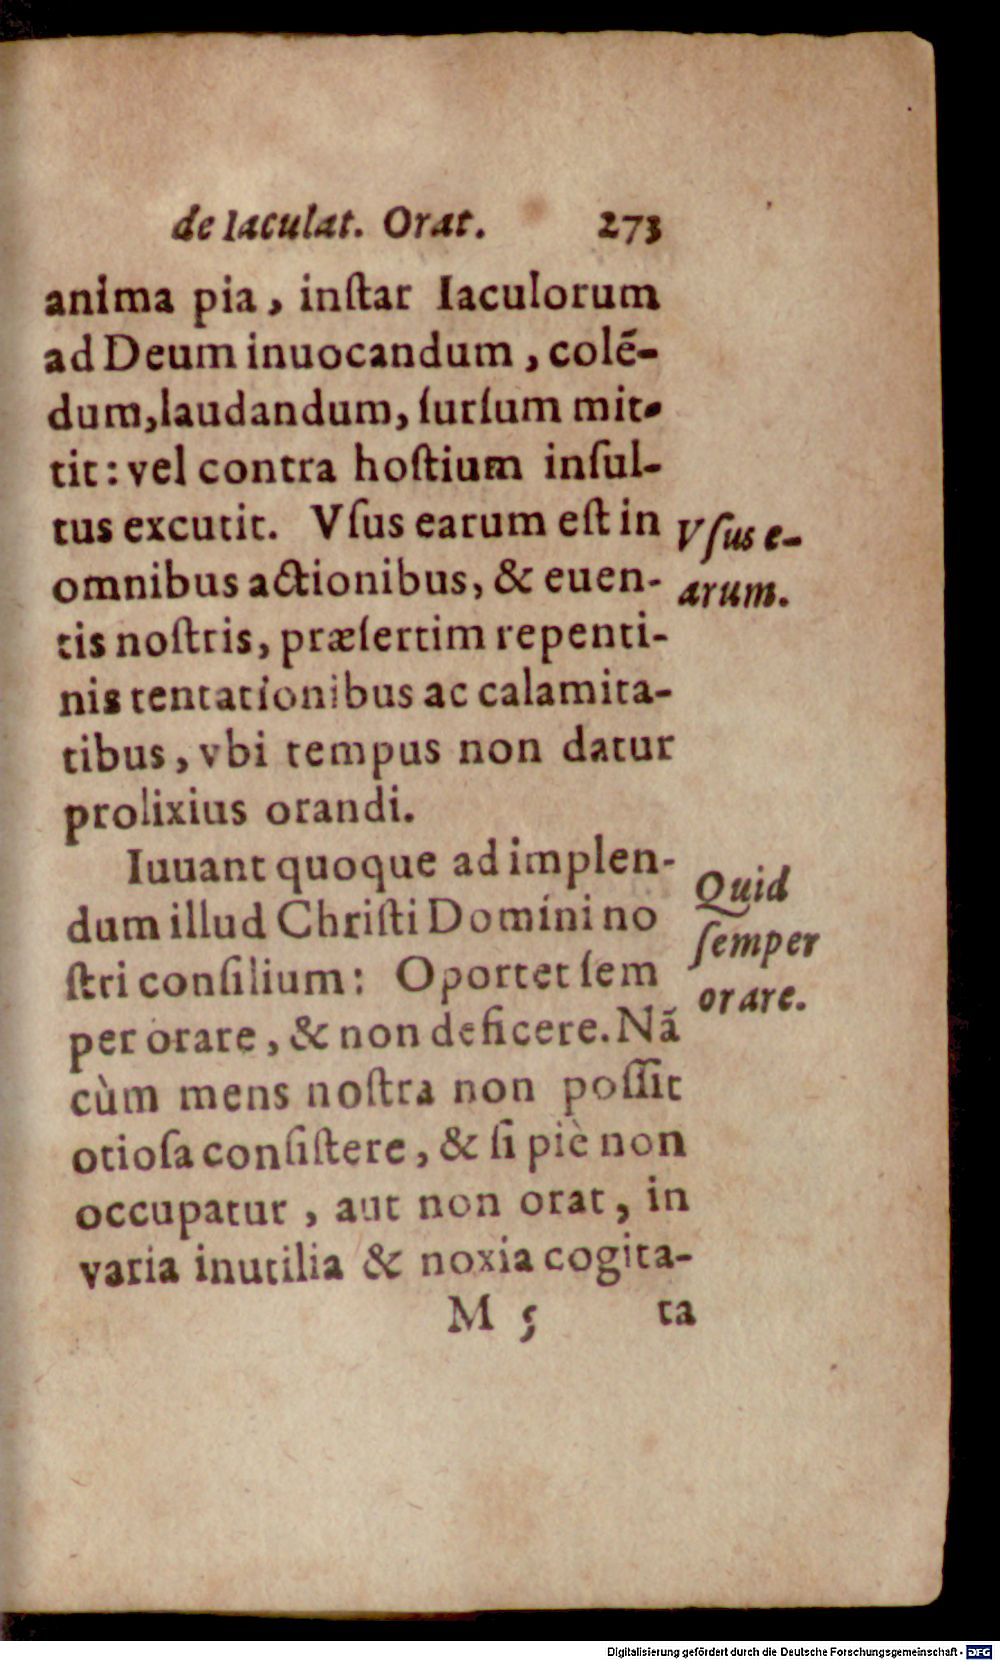 de Iaculat. Orat. 273
anima pia, inſtar Iaculorum
ad Deum inuocandum, colē-
dum, laudandum, ſurſum mit-
tit: vel contra hoſtium inſul-
tus excutit. Vſus earum eſt in
Vſus e-
omnibus actionibus, & euen-
arum.
tis noſtris, præſertim repenti-
nis tentationibus ac calamita-
tibus, vbi tempus non datur
prolixius orandi.
Iuuant quoque ad implen-
Quid
dum illud Chriſti Domini no
ſemper
ſtri conſilium: Oportet ſem
orare.
per orare, & non deficere. Nā
cùm mens noſtra non poſſit
otioſa conſiſtere, & ſi piè non
occupatur, aut non orat, in
varia inutilia & noxia cogita-
M 5 ta
Digitalisierung gefördert durch die Deutsche Forschungsgemeinschaft - DFG